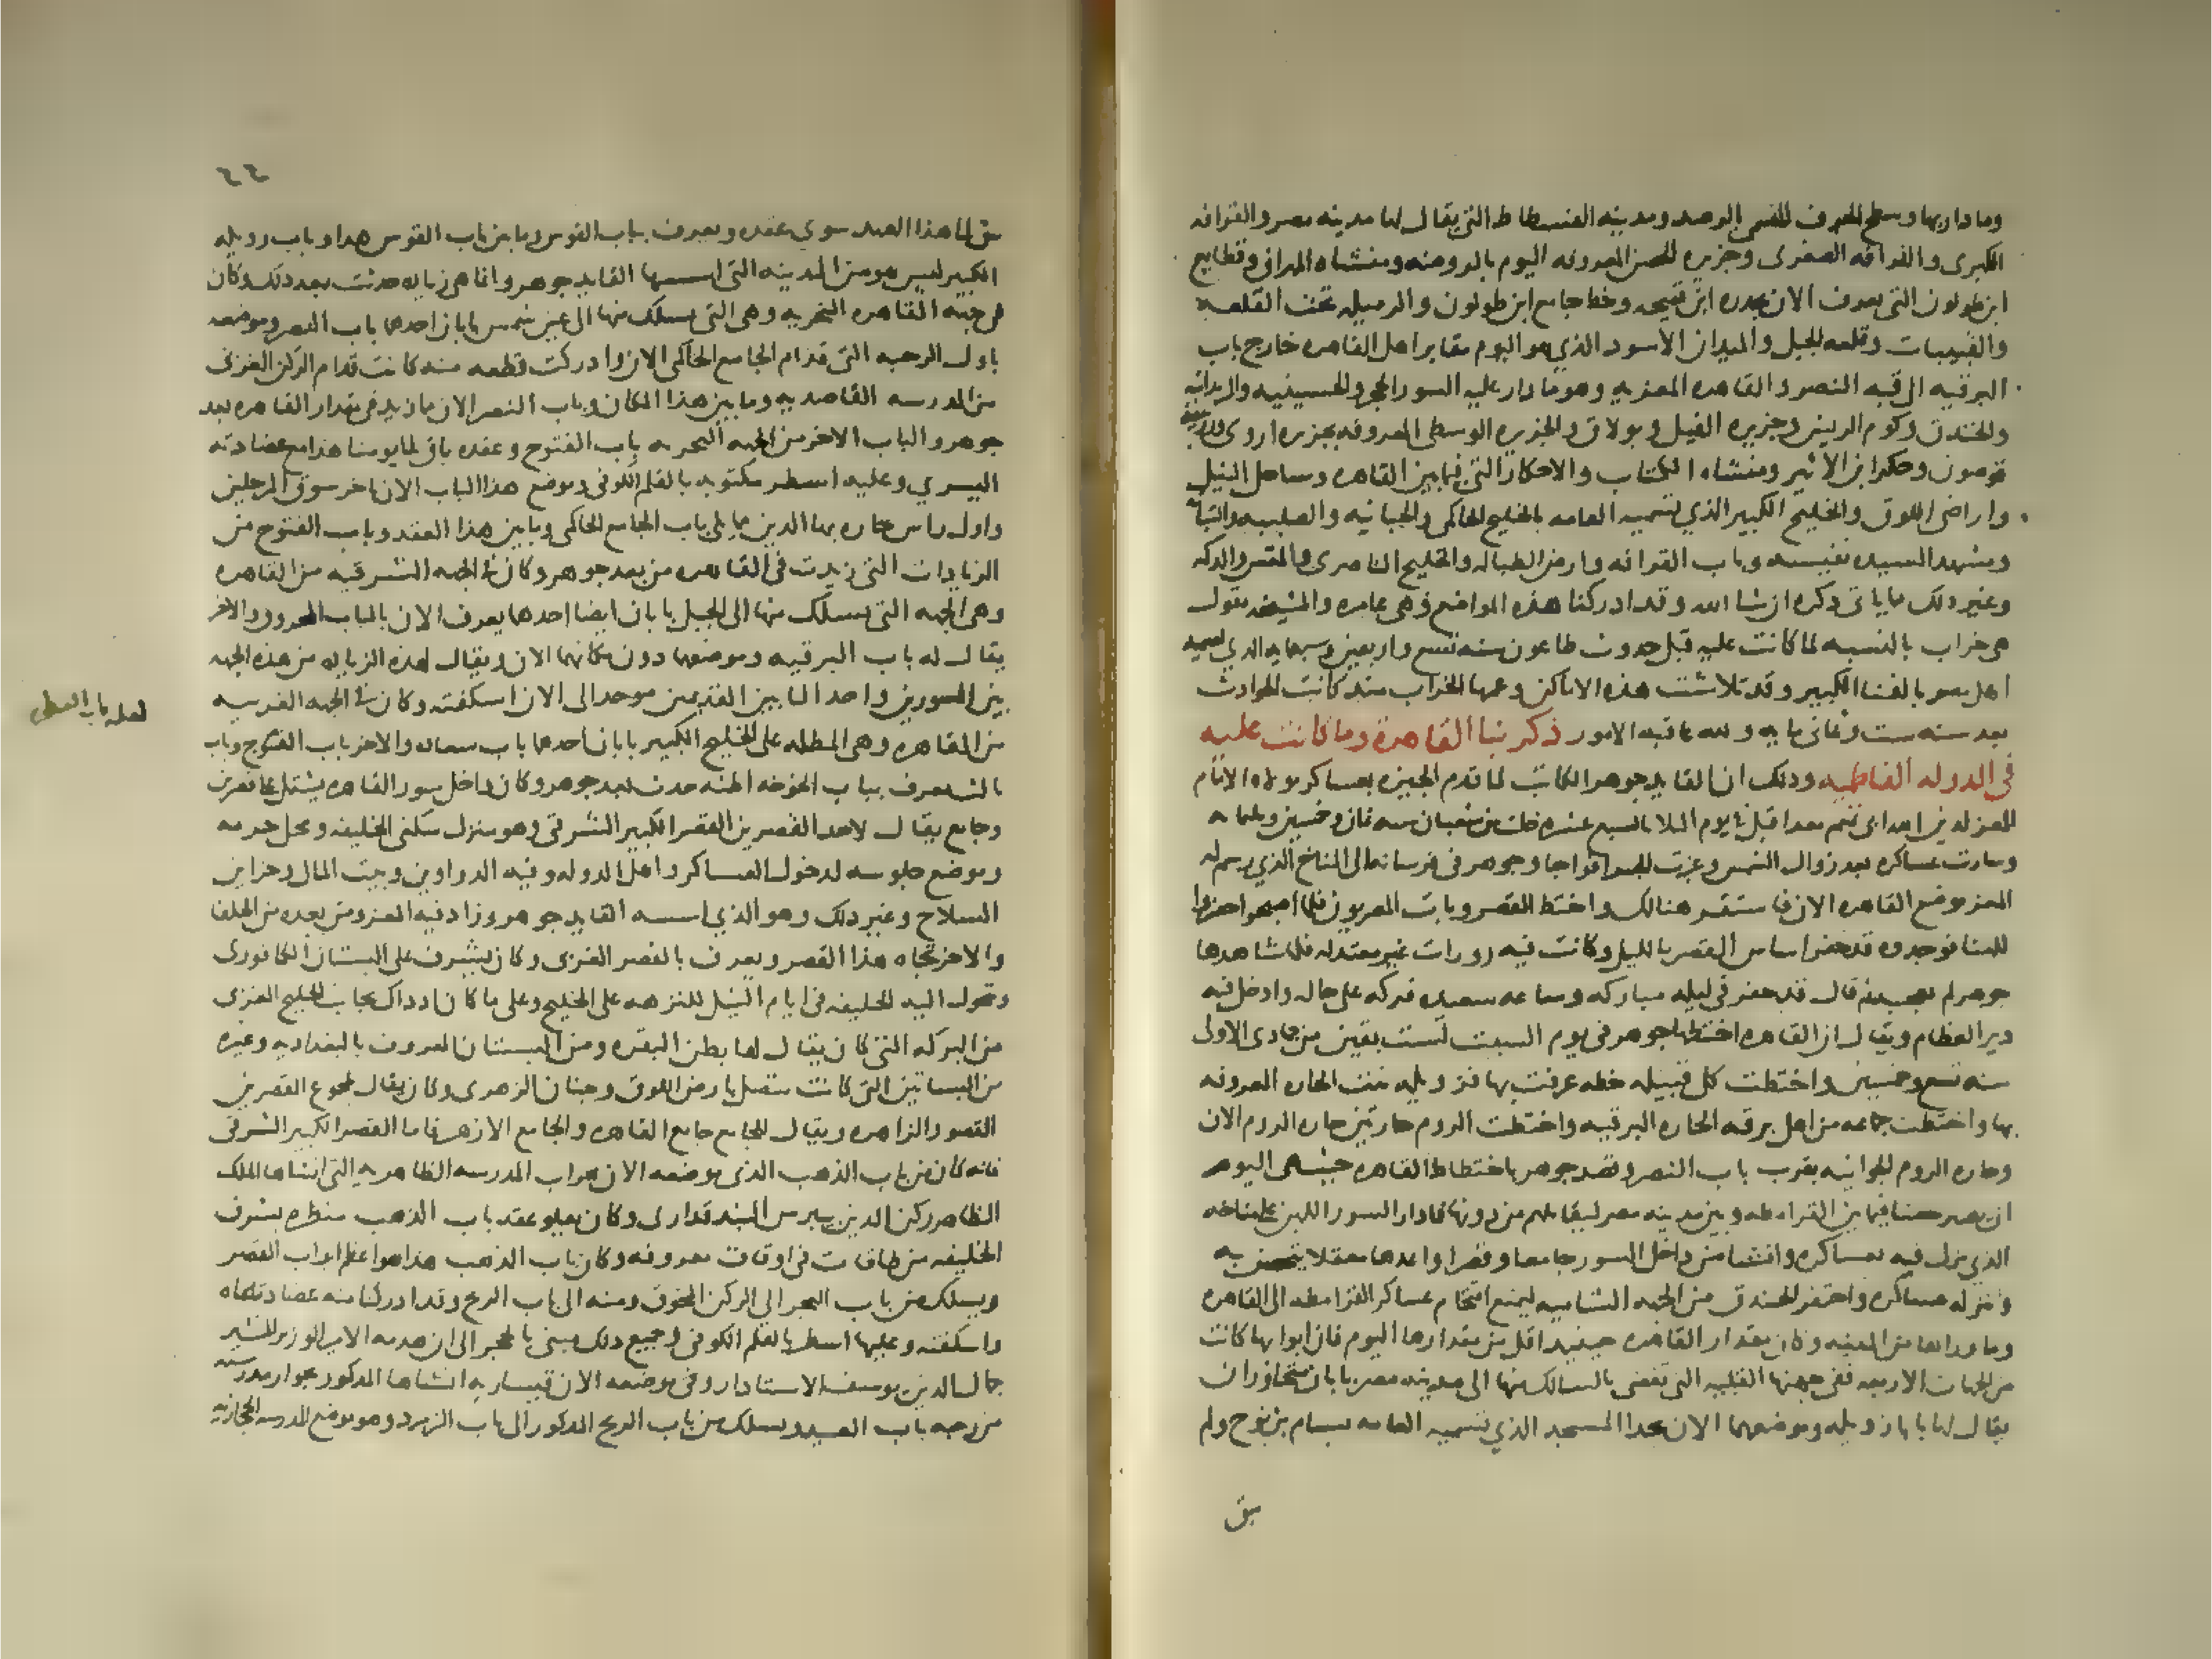 وما دار بها وسطح الجرف المسمى بالرصد ومدينه الفسطاط التي يقال لها مدينه مصر والقرافه
الكبرى والقرافه الصغرى وجزيره الحصن المعروفه اليوم بالروضه ومنشاه المهراني وقطايع
ابن طولون التي تعرف الان بحدره ابن قميحه وخط جامع ابن طولون والرميله تحت القلعه
والقبيبات وقلعه الجبل والميدان الاسود الذي هو اليوم مقابر اهل القاهره خارج باب
البرقيه الى قبه النصر والقاهره المعزيه وهو ما دار عليه السور الحجر والحسينيه والريدانيه
والخندق وكوم الريش وجزيره الفيل وبولاق والجزيره الوسطى المعروفه بجزيره اروى وزريبه
قوصون وحكر ابن الاثير ومنشاه الكتاب والاحكار التي فيما بين القاهره وساحل النيل
واراضي اللوق والخليج الكبير الذي تسميه العامه بالخليج الحاكمي والحبانيه والصليبيه والتبانه
ومشهد السيده نفيسه وباب القرافه وارض الطباله والخليج الناصري والمقس والدكه
وغير ذلك مما ياتي ذكره ان شا الله وقد ادركنا هذه المواضع وهي عامره والمشيخه تقول
هي خراب بالنسبه لما كانت عليه قبل حدوث طاعون سنه تسع واربعين وسبعمايه الذي يسميه
اهل مصر بالفنا الكبير وقد تلاشت هذه الاماكن وعمها الخراب منذ كانت الحوادث
بعد سنه ست وثماني مايه ولله عاقبه الامور ذكر بنا القاهرة وما كانت عليه
في الدوله الفاطميه وذلك ان القايد جوهر الكاتب لما قدم الجيزه بعساكر مولاه الامام
المعز لدين الله ابي تميم معد اقبل في يوم الثلاثا لسبع عشره خلت من شعبان سنه ثمان وخمسين وثلثمايه
وسارت عساكره بعد زوال الشمس وعبرت الجسر افواجا وجوهر في فرسانه الى المناخ الذي رسم له
المعز موضع القاهره الان فاستقر هنالك واختط القصر وبات المصريون فلما اصبحوا حضروا
للهنا فوجدوه قد حفر اساس القصر بالليل وكانت فيه زورات غير معتدله فلما شاهدها
جوهر لم تعجبه ثم قال قد حفر في ليله مباركه وساعه سعيده فتركه على حاله وادخل فيه
دير العظام ويقال ان القاهره اختطها جوهر في يوم السبت لست بقين من جمادى الاولى
سنه تسع وخمسين واختطت كل قبيله خطه عرفت بها فزويله بنت الحاره المعروفه
بها واختطت جماعه من اهل برقه الحاره البرقيه واختطت الروم حارتين حاره الروم الان
وحاره الروم الجوانيه بقرب باب النصر وقصد جوهر باختطاط القاهره حيث هي اليوم
ان تصير حصنا فيما بين القرامطه وبين مدينه مصر ليقاتلهم من دونها فادار السور اللبن على مناخه
الذي نزل فيه بعساكره وانشا من داخل السور جامعا وقصرا واعدها معقلا يتحصن به
وتنزله عساكره واحتفر الخندق من الجهه الشاميه ليمنع اقتحام عساكر القرامطه الى القاهره
وما وراها من المدينه وكان مقدار القاهره حينيذ اقل من مقدارها اليوم فان ابوابها كانت
من الجهات الاربعه ففي جهتها القبليه التي تفضي بالسالك منها الى مدينه مصر بابان متجاوران
يقال لهما بابا زويله وموضعهما الان بحدا المسجد الذي تسميه العامه بسام بن نوح ولم
يبق
٤٤
يبق الى هذا العهد سوى عقده ويعرف بباب القوس وما بين باب القوس هدا وباب زويله
الكبير ليس هو من المدينه التي اسسها القايد جوهر وانما هي زياده حدثت بعد ذلك وكان
في جهه القاهره البحريه وهي التي يسلك منها الى عين شمس بابان احدهما باب النصر وموضعه
باول الرحبه التي قدام الجامع الحاكمي الان وادركت قطعه منه كانت قدام الركن الغربي
من المدرسه القاصديه وما بين هذا المكان وباب النصر الان مما زيد في مقدار القاهره بعد
جوهر والباب الاخر من الجهه البحريه باب الفتوح وعقده باق الى يومنا هدا مع عضادته
اليسري وعليه اسطر مكتوبه بالقلم الكوفي وموضع هذا الباب الان باخر سوق المرحلين
واول راس حاره بها الدين مما يلي باب الجامع الحاكمي وما بين هذا العقد وباب الفتوح من
الزيادات التي زيدت في القاهره من بعد جوهر وكان في الجهه الشرقيه من القاهره
وهي الجهه التي يسلك منها الى الجبل بابان ايضا احدهما يعرف الان بالباب المحروق والاخر
يقال له باب البرقيه وموضعهما دون مكانهما الان ويقال لهذه الزياده من هذه الجهه
بين السورين واحد البابين القديمين موجد الى الان اسكفته وكان في الجهه الغربيه
من القاهره وهي المطله على الخليج الكبير بابان احدهما باب سعاده والاخر باب الفتوح وباب
ثالث يعرف بباب الخوخه اظنه حدث بعد جوهر وكان داخل سور القاهره يشتمل على قصرين
وجامع يقال لاحد القصرين القصر الكبير الشرقي وهو منزل سكنى الخليفه ومحل حرمه
وموضع جلوسه لدخول العساكر واهل الدوله وفيه الدواوين وبيت المال وخزاين
السلاح وغير ذلك وهو الذي اسسه القايد جوهر وزاد فيه المعز ومن بعده من الخلفا
والاخر تجاه هذا القصر ويعرف بالقصر الغربي وكان يشرف على البستان الكافوري
ويتحول اليه الخليفه في ايام النيل للنزهه على الخليج وعلى ما كان اد داك بجانب الخليج الغربي
من البركه التي كان يقال لها بطن البقره ومن البستان المعروف بالبغداديه وغيره
من البساتين التي كانت تتصل بارض اللوق وجنان الزهري وكان يقال لمجموع القصرين
القصور الزاهره ويقال للجامع جامع القاهره والجامع الازهر فاما القصر الكبير الشرقي
فانه كان من باب الذهب الذي موضعه الان محراب المدرسه الظاهريه التي انشاها الملك
الظاهر ركن الدين بيبرس البندقداري وكان يعلو عقد باب الذهب منظره يشرف
الخليفه من طاقات في اوقات معروفه وكان باب الذهب هذا هو اعظم ابواب القصر
ويسلك من باب البحر الى الركن المخوق ومنه الى باب الريح وقد ادركنا منه عضادتاه
واسكفته وعليها اسطر بالقلم الكوفي وجميع ذلك مبني بالحجر الى ان هدمه الامير الوزير المشير
جمال الدين يوسف الاستادار وفي موضعه الان قيساريه انشاها المذكور بجوار مدرسته
من رحبه باب العيد ويسلك من باب الريح المدكور الى باب الزمرد وهو موضع المدرسه الحجازيه
لعله باب القنطره